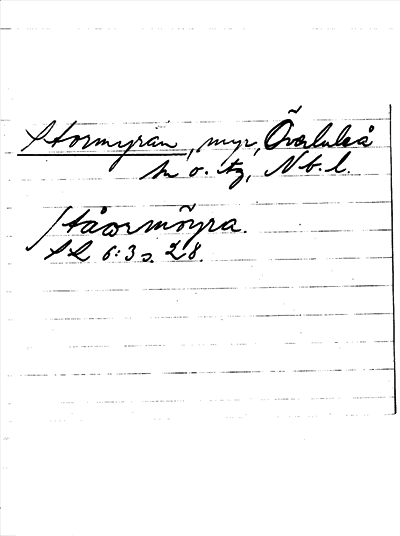 Stormyran, myr, Överluleå
sn o. tg, Nb. l.
Ståormöyra.
SL 6:3 s. 28.